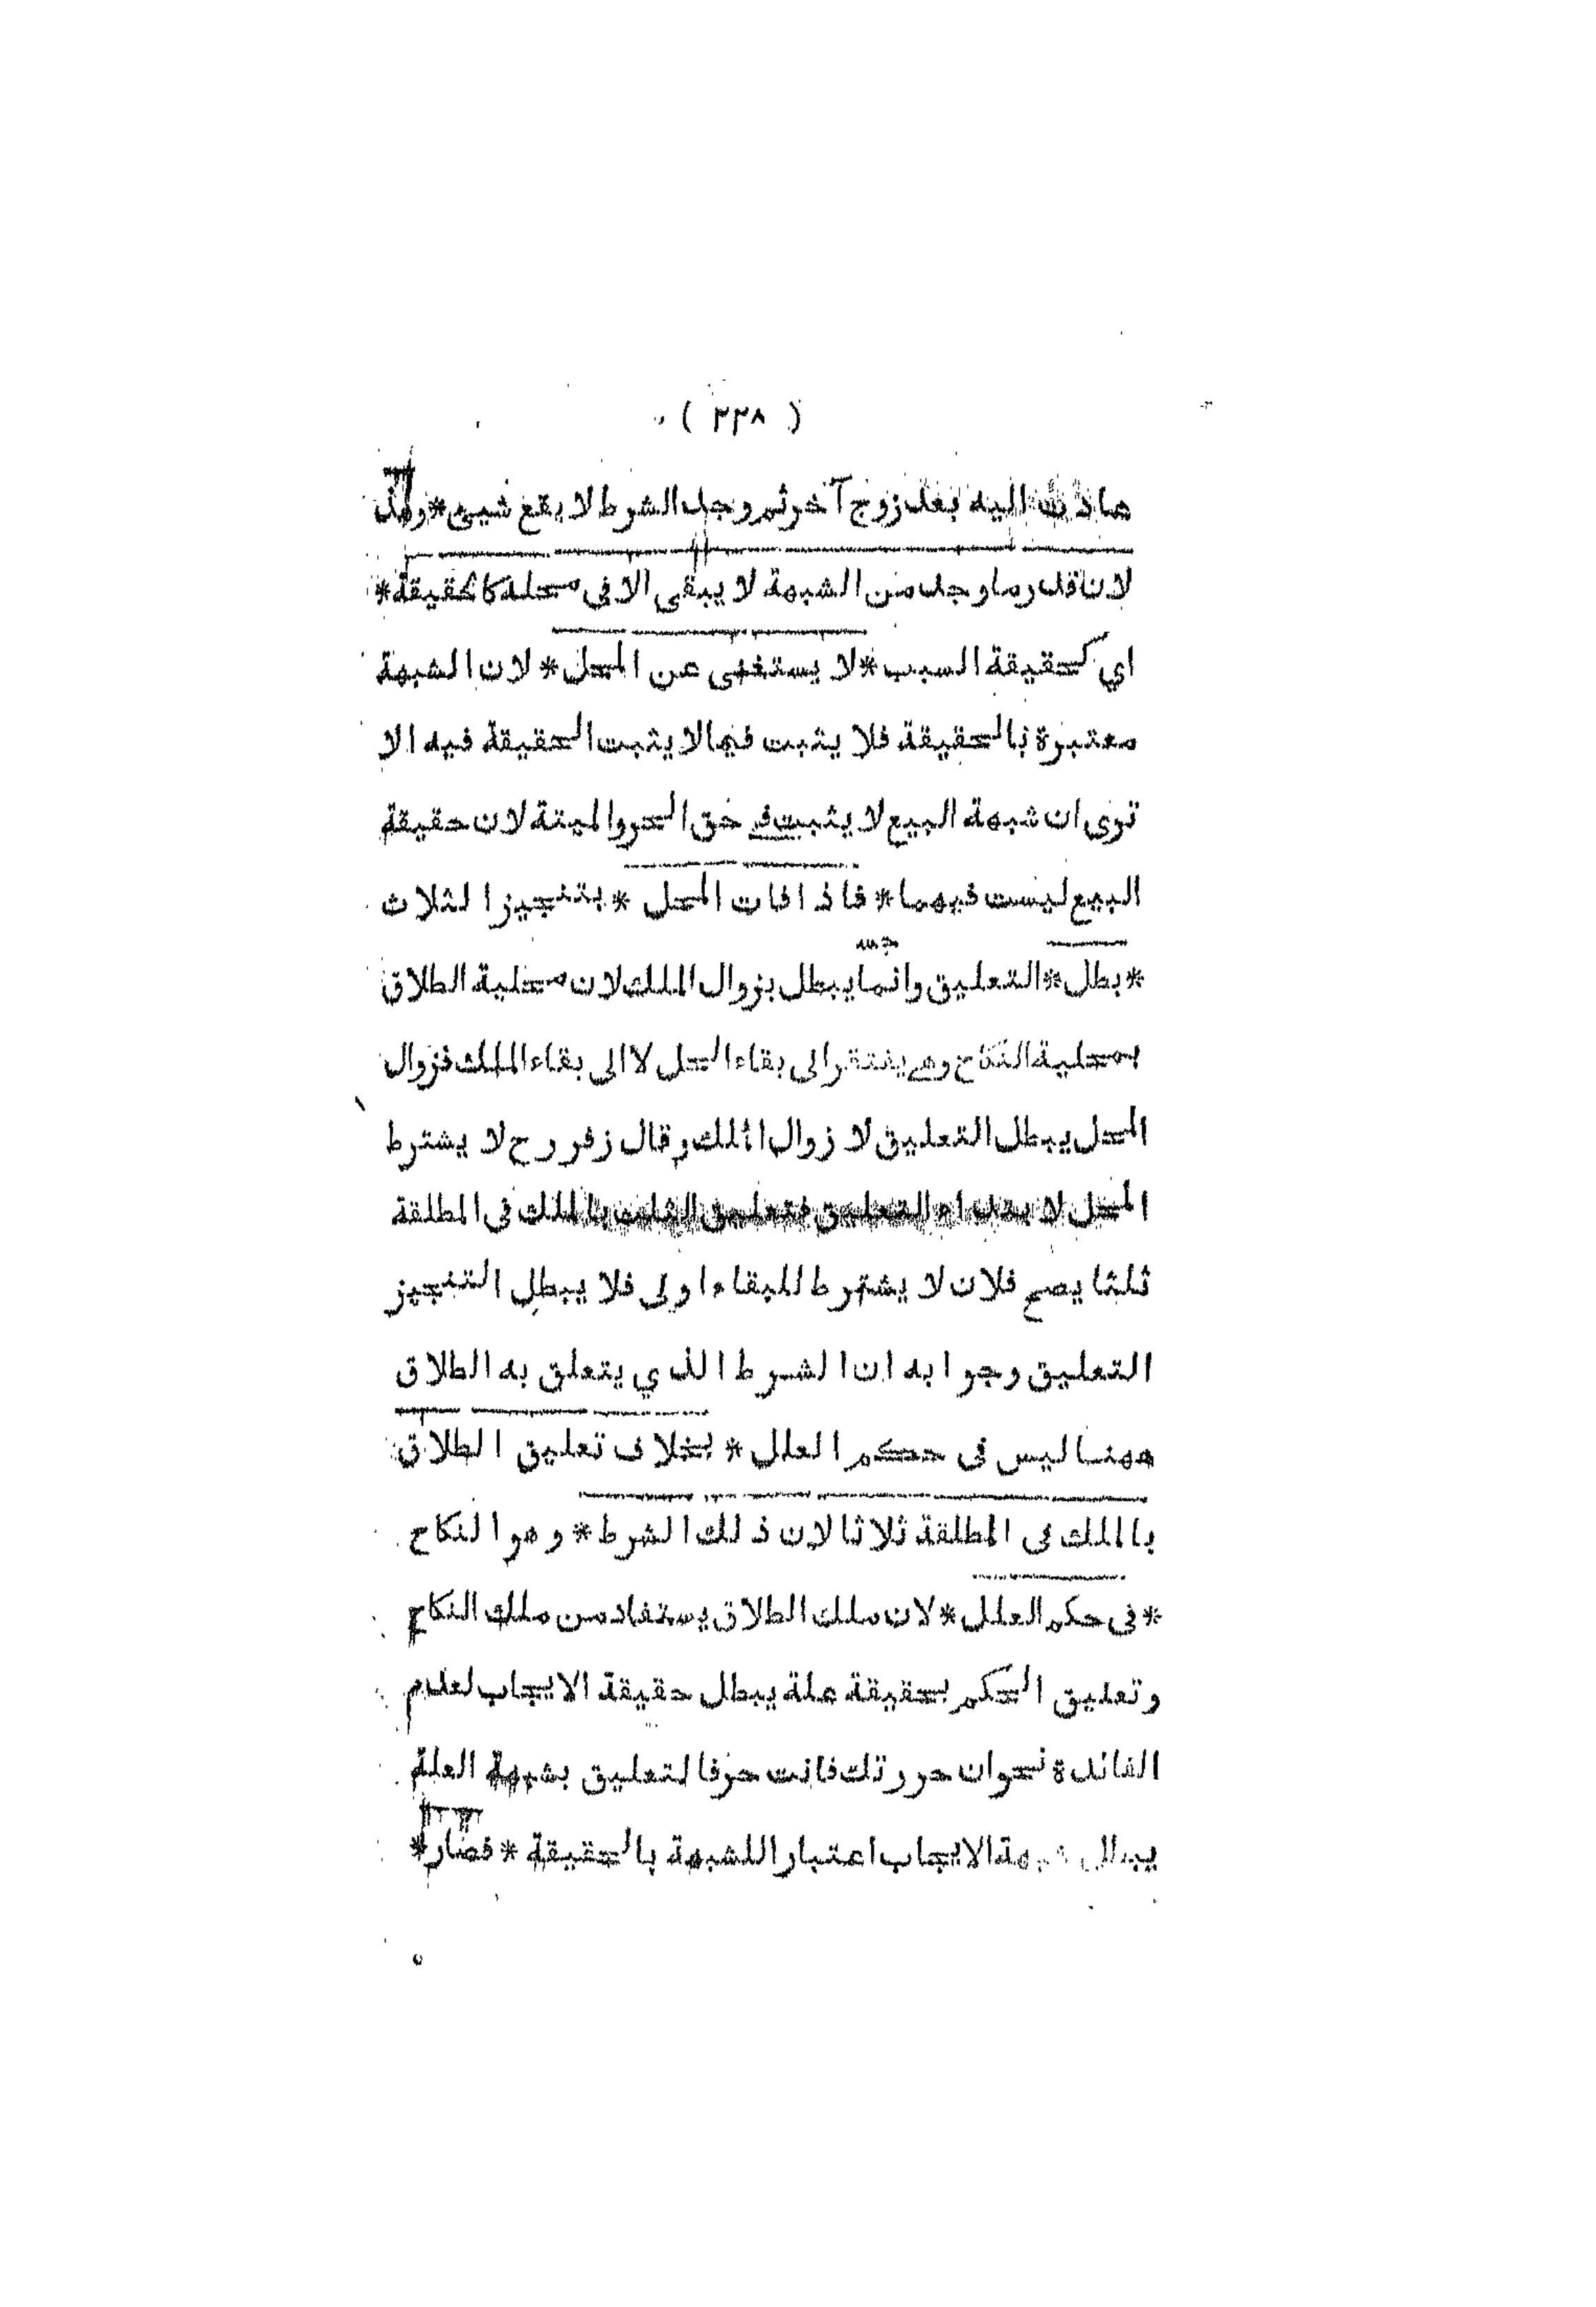 ( ٢٣٨ )
عادت اليه بعد زوج آخر ثم وجد الشرط لا يقع شيئ * وهذا
لان قدر ما وجد من الشبهة لا يبقى الا في محله كالحقيقة *
اي كحقيقة السبب * لا يستغنى عن المحل * لان الشبهة
معتبرة بالحقيقة فلا يثبت فيما لا يثبت الحقيقة فيه الا
ترى ان شبهة البيع لا يثبت في حق الحر والميتة لان حقيقة
البيع ليست فيهما * فاذا فات المحل * بتنجيز الثلاث
* بطل * التعليق وانما يبطل بزوال الملك لان محلية الطلاق
بمحلية النكاح وهي يفتقر الى بقاء الحل لا الى بقاء الملك فزوال
المحل يبطل التعليق لا زوال الملك وقال زفر رح لا يشترط
المحل لا بتداء التعليق فتعليق الثلث بالملك في المطلقة
ثلثا يصح فلان لا يشترط للبقاء اولى فلا يبطل التنجيز
التعليق وجوابه ان الشرط الذي يتعلق به الطلاق
ههنا ليس في حكم العلل * بخلاف تعليق الطلاق
بالملك في المطلقة ثلاثا لان ذلك الشرط * وهو النكاح
* في حكم العلل * لان ملك الطلاق يستفاد من ملك النكاح
وتعليق الحكم بحقيقة علة يبطل حقيقة الايجاب لعدم
الفائدة نحو ان حررتك فانت حر فالتعليق بشبهة العلة
يبطل شبهة الايجاب اعتبارا للشبهة بالحقيقة * فصار *